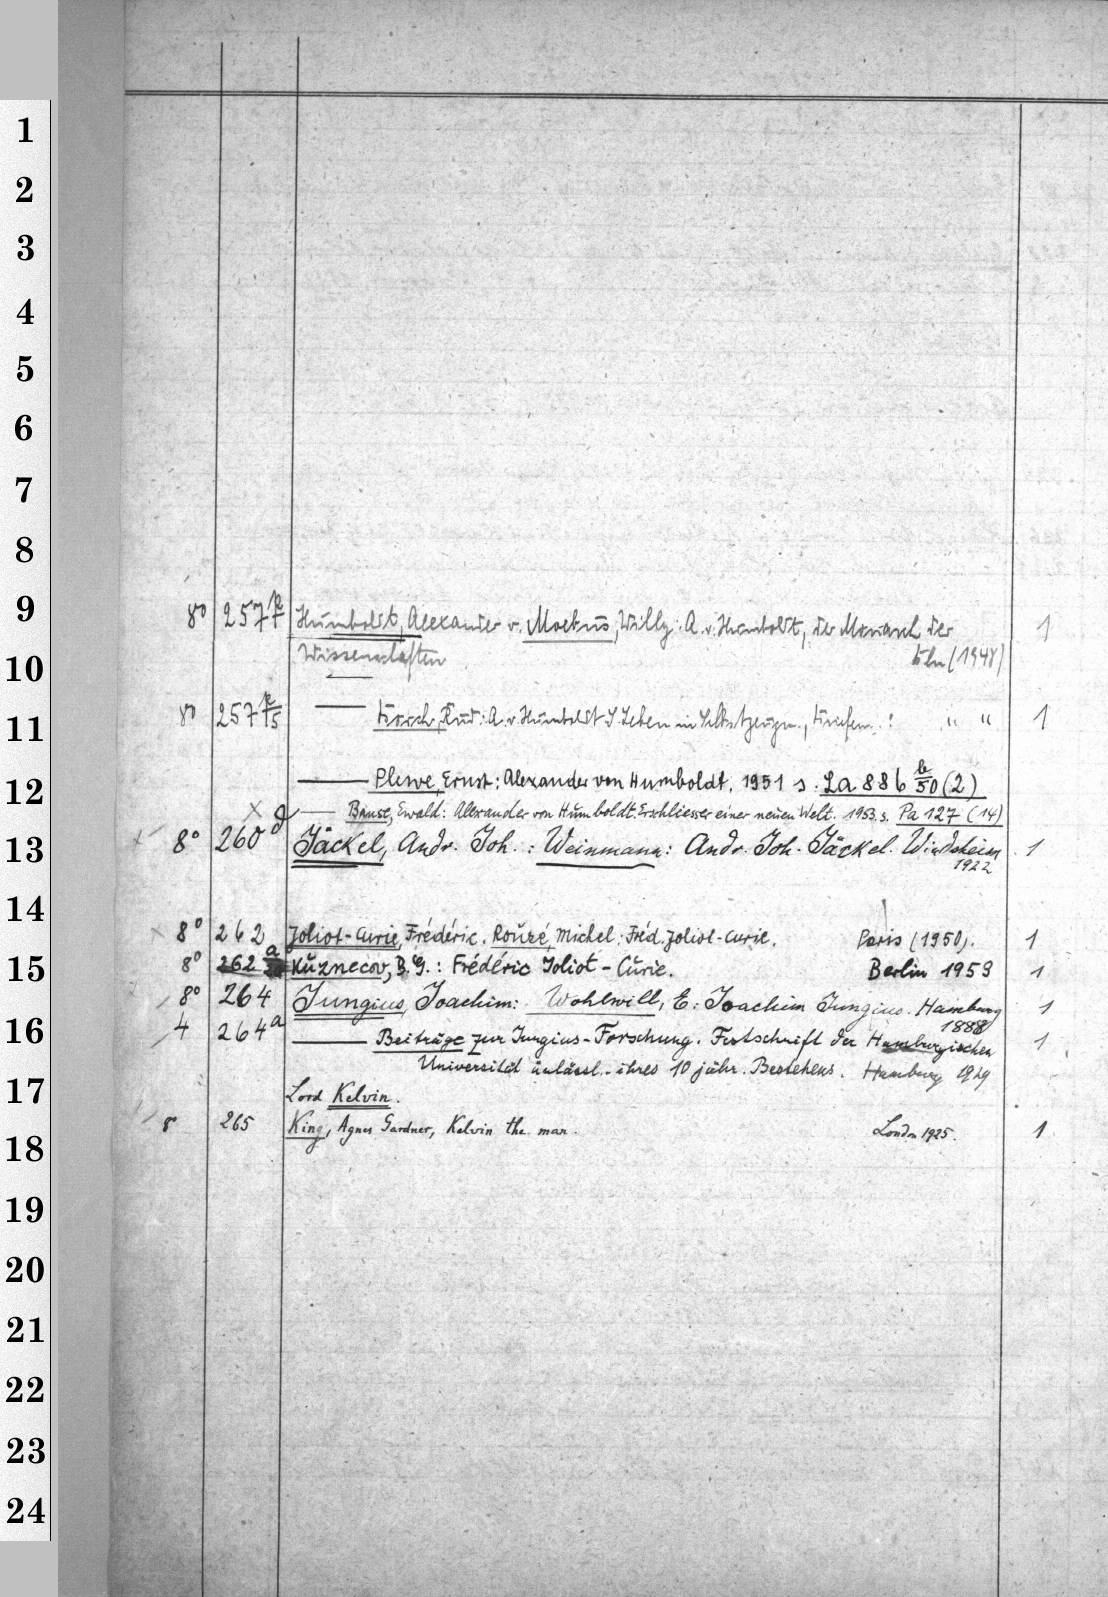 1
2
3
4
5
6
7
8
9
10
11
12
13
14
15
16
17
18
19
20
21
22
23
24
8° 257 Humboldt, Alexander v. Moebus, Willy: A. v. Humboldt, der Monarch der 1
Wissenschaften Bln (1948)
8° 257 Borch, Rud: A. v. Humboldt S. Leben in Selbstzeugn., Briefen " " 1
Plewe, Ernst: Alexander von Humboldt. 1951 s. La 886 b/50 (2)
Banse, Ewald: Alexander von Humboldt. Erschliesser einer neuen Welt. 1953. s. Pa 127 (14)
8° 260 d Jäckel, Andr. Joh.: Weinmann: Andr. Joh. Jäckel. Windsheim 1
1922
8° 262 Joliot-Curie, Frédéric. Rouzé, Michel: Fréd. Joliot-Curie. Paris (1950). 1
8° 262 a Kuznecov, B. G.: Frédéric Joliot-Curie. Berlin 1959 1
8° 264 Jungius, Joachim: Wohlwill, E: Joachim Jungius. Hamburg 1
1888
4 264 a Beiträge zur Jungius-Forschung. Festschrift der Hamburgischen 1
Universität anlässl. ihres 10 jähr. Bestehens. Hamburg 1929
Lord Kelvin.
8 265 King, Agnes Gardner, Kelvin the man. London 1925. 1